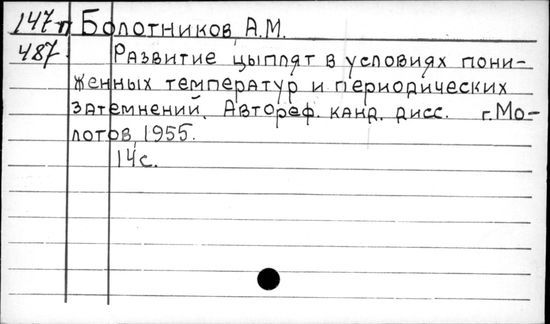 147п Болотников, А.М.
487. Развитие цыплят в условиях пони-
женных температур и периодических
затемнений. Автореф. канд. дисс. г.Мо-
лотов, 1955.
14с.